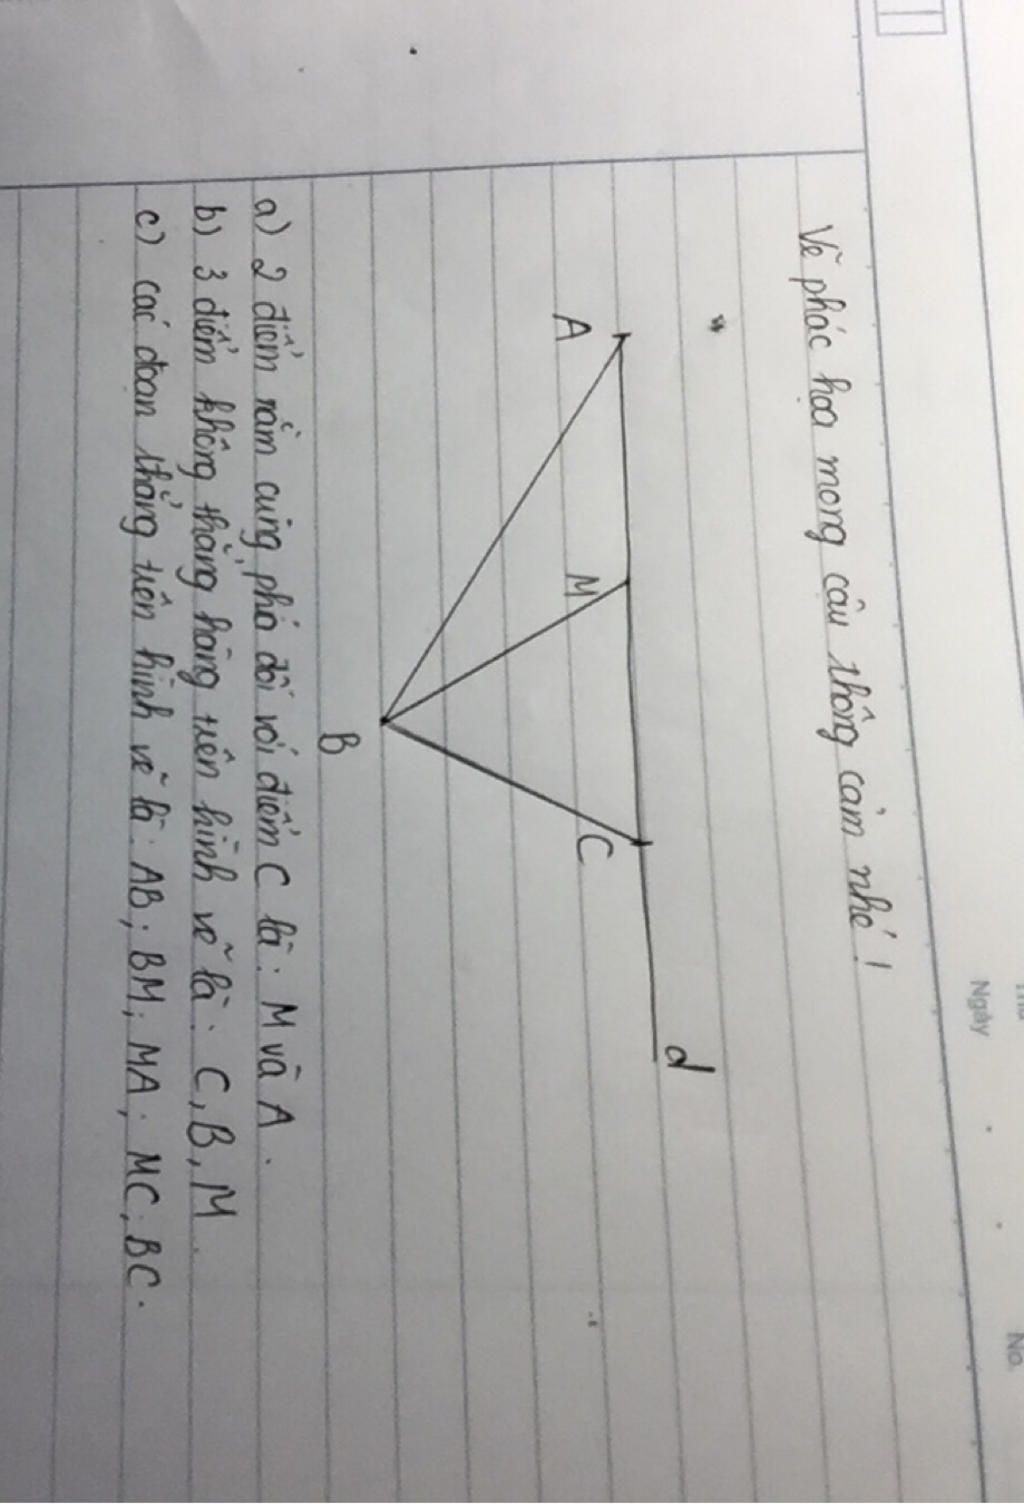 Thứ
Ngày
No.
Vẽ phác họa mong câu thông cảm nhé!
A
M
C
d
B
a) 2 điểm nằm cùng phía đối với điểm C là: M và A.
b) 3 điểm không thẳng hàng trên hình vẽ là: C, B, M.
c) các đoạn thẳng trên hình vẽ là: AB; BM; MA; MC; BC.